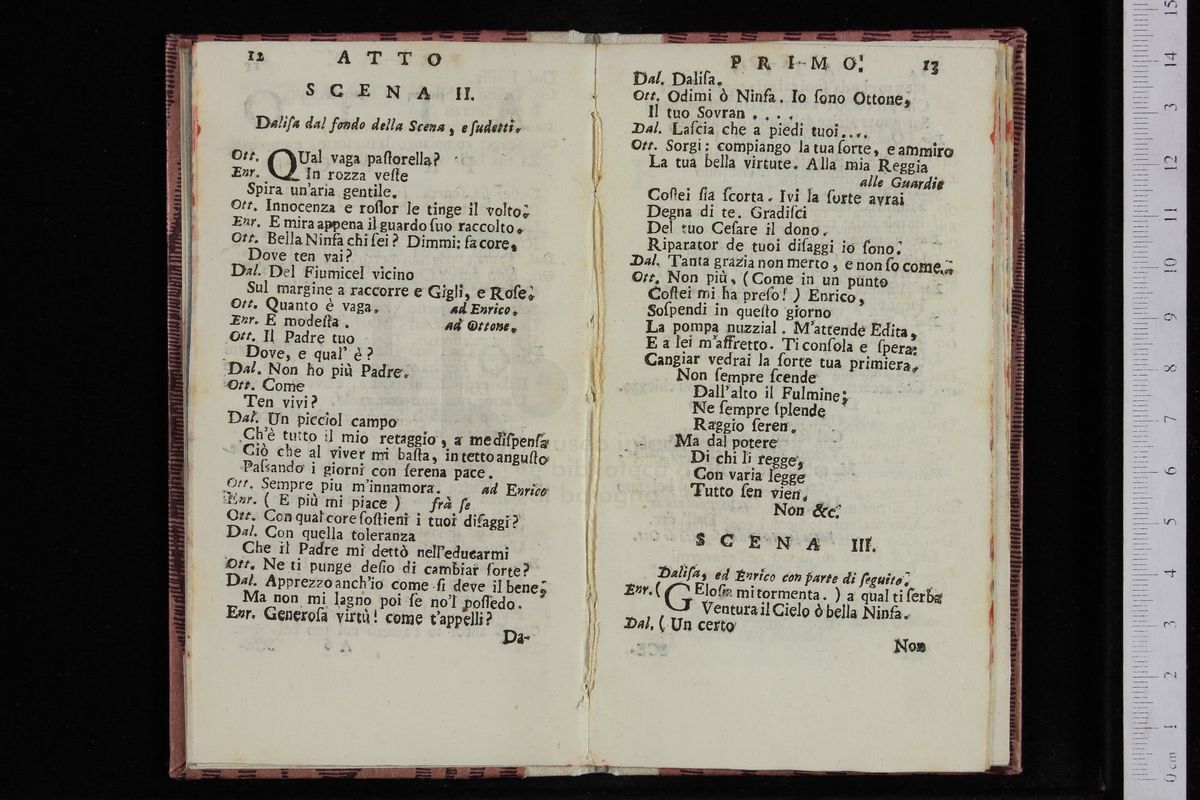 12 ATTO
SCENA II.
Daliſa dal fondo della Scena, e ſudetti.
Ott. QUal vaga paſtorella?
Enr. In rozza veſte
Spira un'aria gentile.
Ott. Innocenza e roſſor le tinge il volto.
Enr. E mira appena il guardo ſuo raccolto.
Ott. Bella Ninfa chi ſei? Dimmi: fa core,
Dove ten vai?
Dal. Del Fiumicel vicino
Sul margine a raccorre e Gigli, e Roſe.
Ott. Quanto è vaga. ad Enrico.
Enr. E modeſta. ad Ottone.
Ott. Il Padre tuo
Dove, e qual' è?
Dal. Non ho più Padre.
Ott. Come
Ten vivi?
Dal. Un picciol campo
Ch'è tutto il mio retaggio, a me diſpenſa
Ciò che al viver mi baſta, in tetto anguſto
Paſsando i giorni con ſerena pace.
Ott. Sempre piu m'innamora. ad Enrico
Enr. ( E più mi piace ) frà ſe
Ott. Con qual core ſoſtieni i tuoi diſaggi?
Dal. Con quella toleranza
Che il Padre mi dettò nell'educarmi
Ott. Ne ti punge deſio di cambiar ſorte?
Dal. Apprezzo anch'io come ſi deve il bene;
Ma non mi lagno poi ſe no'l poſſedo.
Enr. Generoſa virtù! come t'appelli?
Da-
PRIMO. 13
Dal. Daliſa.
Ott. Odimi ò Ninfa. Io ſono Ottone,
Il tuo Sovran . . . .
Dal. Laſcia che a piedi tuoi....
Ott. Sorgi: compiango la tua ſorte, e ammiro
La tua bella virtute. Alla mia Reggia
alle Guardie
Coſtei ſia ſcorta. Ivi la ſorte avrai
Degna di te. Gradiſci
Del tuo Ceſare il dono.
Riparator de tuoi diſaggi io ſono.
Dal. Tanta grazia non merto, e non ſo come..
Ott. Non più, (Come in un punto
Coſtei mi ha preſo! ) Enrico,
Soſpendi in queſto giorno
La pompa nuzzial. M'attende Edita,
E a lei m'affretto. Ti conſola e ſpera:
Cangiar vedrai la ſorte tua primiera.
Non ſempre ſcende
Dall'alto il Fulmine;
Ne ſempre ſplende
Raggio ſeren.
Ma dal potere
Di chi li regge,
Con varia legge
Tutto ſen vien.
Non &c.
SCENA III.
Daliſa, ed Enrico con parte di ſeguito.
Enr. ( GEloſia mi tormenta. ) a qual ti ſerba
Ventura il Cielo ò bella Ninfa.
Dal. ( Un certo
Non